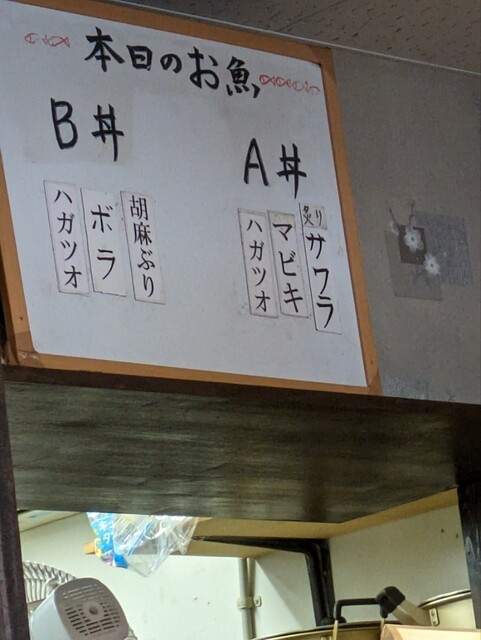 本日のお魚
A丼
炙りサワラ
マビキ
ハガツオ
B丼
胡麻ぶり
ボラ
ハガツオ